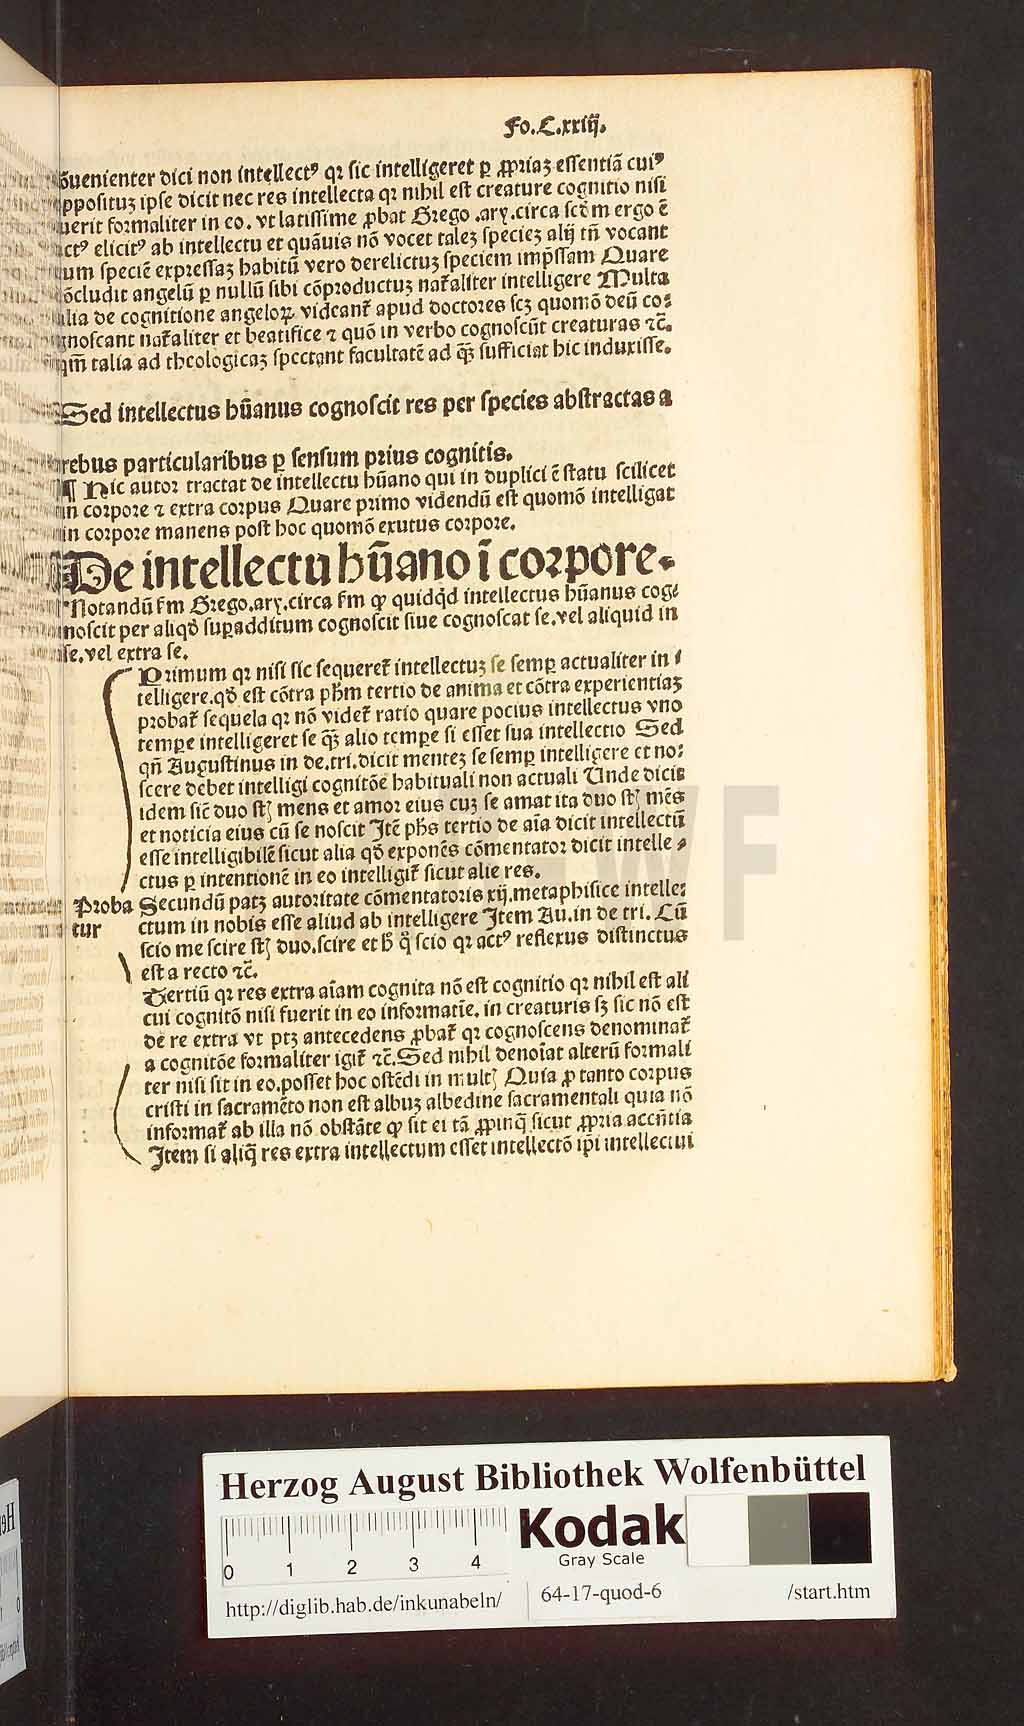 Fo.C.xxiij.
õuenienter dici non intellectꝰ qꝛ sic intelligeret ꝑ ꝓpriaꝫ essentiã cuiꝰ
opposituꝫ ipse dicit nec res intellecta qꝛ nihil est creature cognitio nisi
uerit formaliter in eo. vt latissime ꝓbat Grego .ary. circa scd̃m ergo ẽ
actꝰ elicitꝰ ab intellectu et quãuis nõ vocet taleꝫ specieꝫ alij tñ vocant
um speciẽ expressaꝫ habitũ vero derelictuꝫ speciem imp̃ssam Quare
õcludit angelũ ꝑ nullũ sibi cõproductuꝫ nat̃aliter intelligere Multa
alia de cognitione angeloꝝ videant̃ apud doctores scꝫ quomõ deũ co⸗
gnoscant nat̃aliter et beatifice ⁊ quõ in verbo cognoscũt creaturas ⁊c̃.
qm̃ talia ad theologicaꝫ spectant facultatẽ ad q̃ꝫ sufficiat hic induxisse.
Sed intellectus hũanus cognoscit res per species abstractas a
rebus particularibus ꝑ sensum prius cognitis.
¶ Hic autor tractat de intellectu hũano qui in duplici ẽ statu scilicet
in corpore ⁊ extra corpus Quare primo videndũ est quomõ intelligat
in corpore manens post hoc quomõ exutus corpore.
De intellectu hũano ĩ corpore.
Notandũ f̃m Grego.ary.circa f̃m ꝙ quidq̃d intellectus hũanus cog⸗
noscit per aliqd̃ suꝑadditum cognoscit siue cognoscat se.vel aliquid in
se.vel extra se.
Primum qꝛ nisi sic sequeret̃ intellectuꝫ se semꝑ actualiter in⸗
telligere.qd̃ est cõtra ph̃m tertio de anima et cõtra experientiaꝫ
probat̃ sequela qꝛ nõ videt̃ ratio quare pocius intellectus vno
temꝑe intelligeret se q̃ꝫ alio temꝑe si esset sua intellectio Sed
qñ Augustinus in de.tri.dicit menteꝫ se semꝑ intelligere et no⸗
scere debet intelligi cognitõe habituali non actuali Unde dicit
idem sic̃ duo st̃ mens et amor eius cuꝫ se amat ita duo st̃ mẽs
et noticia eius cũ se noscit Itẽ ph̃s tertio de aĩa dicit intellectũ
esse intelligibilẽ sicut alia qd̃ exponẽs cõmentator dicit intelle⸗
ctus ꝑ intentionẽ in eo intelligit̃ sicut alie res.
Proba
tur
Secundũ patꝫ autoritate cõmentatoris xij.metaphisice intelle⸗
ctum in nobis esse aliud ab intelligere Item Au.in de tri. Cũ
scio me scire st̃ duo.scire et h̃ q̃ scio qꝛ actꝰ reflexus distinctus
est a recto ⁊c̃.
Tertiũ qꝛ res extra aĩam cognita nõ est cognitio qꝛ nihil est ali
cui cognitõ nisi fuerit in eo informatiẽ. in creaturis sꝫ sic nõ est
de re extra vt ptꝫ antecedens ꝓbat̃ qꝛ cognoscens denominat̃
a cognitõe formaliter igit̃ ⁊c̃.Sed nihil denoĩat alterũ formali
ter nisi sit in eo.posset hoc ostẽdi in mult̃ Quia ꝓ tanto corpus
cristi in sacramẽto non est albuꝫ albedine sacramentali quia nõ
informat̃ ab illa nõ obstãte ꝙ sit ei tã ꝓpinq̃ sicut ꝓpria accñtia
Item si aliq̃ res extra intellectum esset intellectõ ip̃i intellectui
Herzog August Bibliothek Wolfenbüttel
0 1 2 3 4
Kodak
Gray Scale
http://diglib.hab.de/inkunabeln/
64-17-quod-6
/start.htm